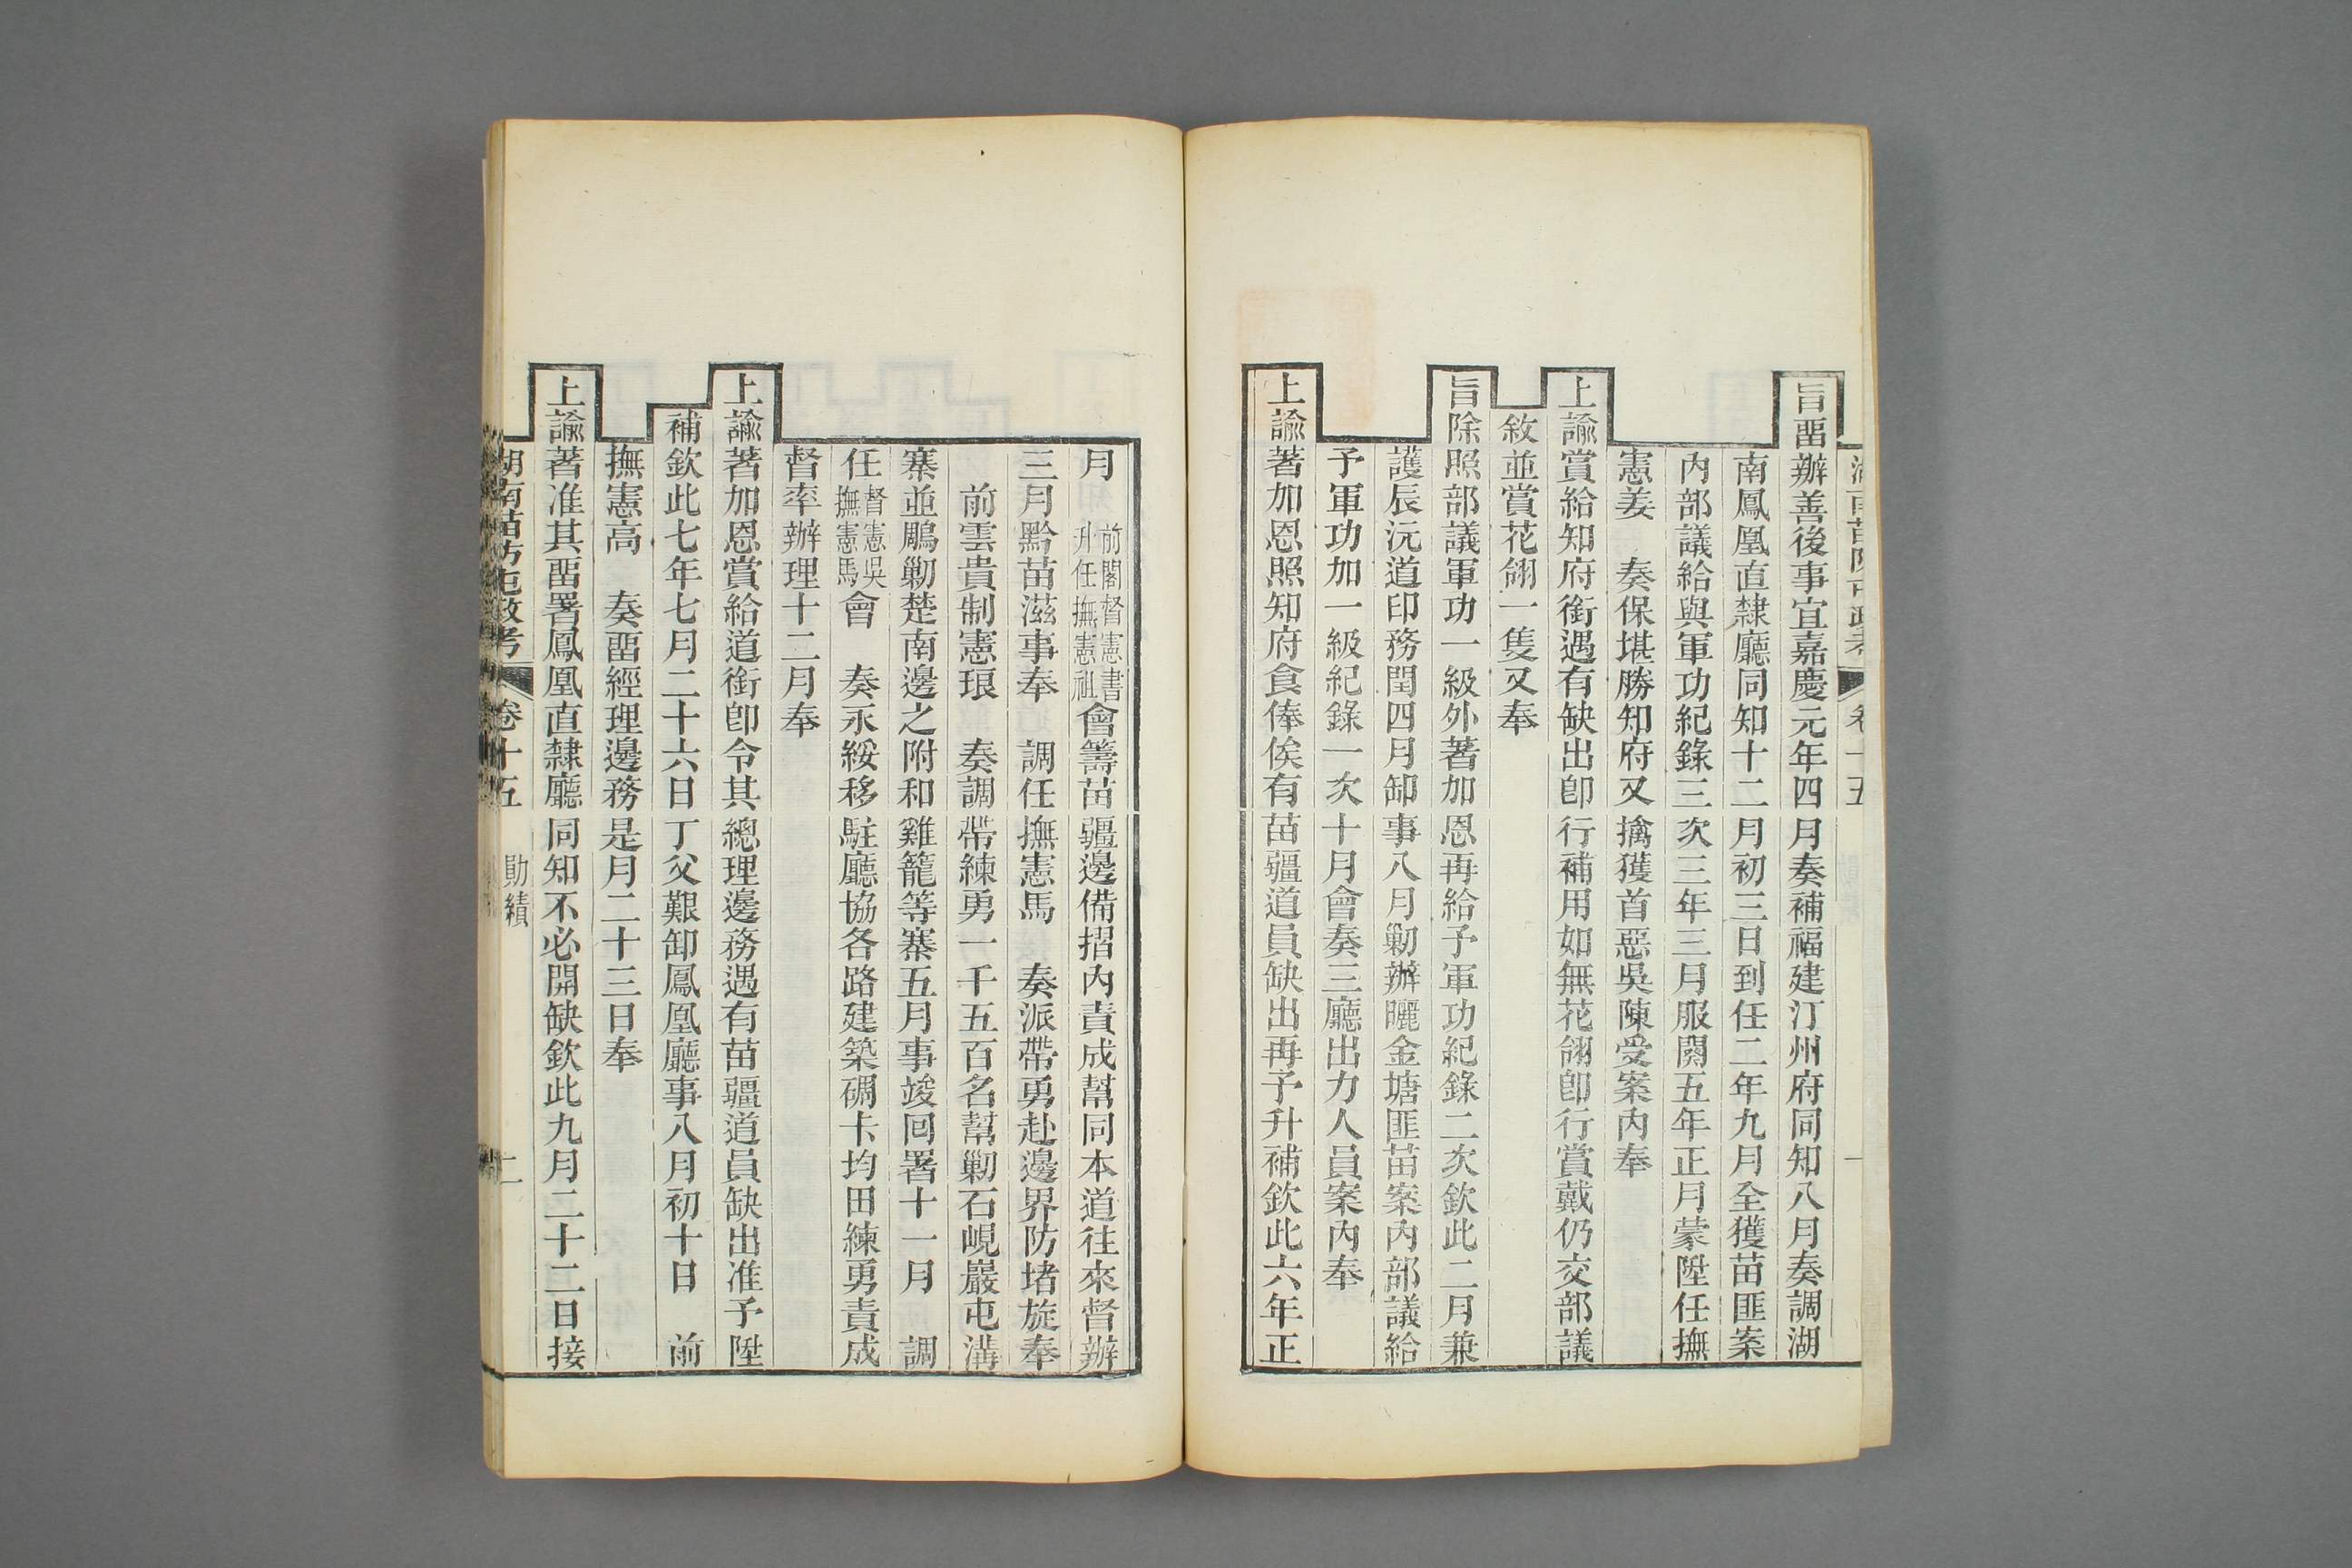 旨畱辦善後事宜嘉慶元年四月奏補福建汀州府同知八月奏調湖
南鳳凰直隸廳同知十二月初三日到任二年九月全獲苗匪案
內部議給與軍功紀錄三次三年三月服闋五年正月蒙陞任撫
憲姜　奏保堪勝知府又擒獲首惡吳陳受案內奉
上諭賞給知府銜遇有缺出卽行補用如無花翎卽行賞戴仍交部議
敘並賞花翎一隻又奉
旨除照部議軍功一級外著加恩再給予軍功紀錄二次欽此二月兼
護辰沅道印務閏四月卸事八月勦辦曬金塘匪苗案內部議給
予軍功加一級紀錄一次十月會奏三廳出力人員案內奉
上諭著加恩照知府食俸俟有苗疆道員缺出再予升補欽此六年正
月前閣督憲書升任撫憲祖會籌苗疆邊備摺內責成幫同本道往來督辦
三月黔苗滋事奉　調任撫憲馬　奏派帶勇赴邊界防堵旋奉
前雲貴制憲琅　奏調帶練勇一千五百名幫勦石峴巖屯溝
寨並鵰勦楚南邊之附和雞籠等寨五月事竣回署十一月　調
任督憲吳撫憲馬會　奏永綏移駐廳協各路建築碉卡均田練勇責成
督率辦理十二月奉
上諭著加恩賞給道銜卽令其總理邊務遇有苗疆道員缺出准予陞
補欽此七年七月二十六日丁父艱卸鳳凰廳事八月初十日　前
撫憲高　奏畱經理邊務是月二十三日奉
上諭著准其畱署鳳凰直隸廳同知不必開缺欽此九月二十二日接
湖南苗防屯政考　卷十五　勛績　二